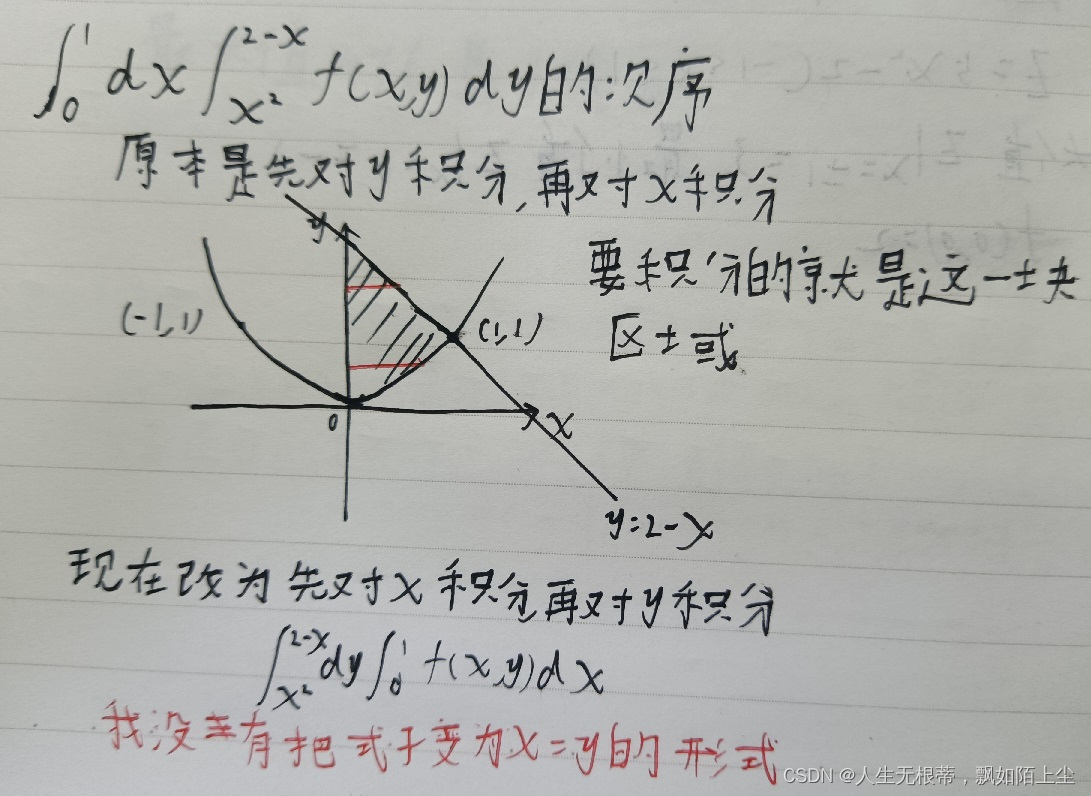 ∫₀¹ dx ∫_{x²}^{2-x} f(x,y) dy的次序
原本是先对y积分,再对x积分
y
要积分的就是这一块
(-1,1)
(1,1)
区域
0
x
y=2-x
现在改为先对x积分再对y积分
∫_{x²}^{2-x} dy ∫₀¹ f(x,y) dx
我没有把式子变为x=y的形式
CSDN @人生无根蒂，飘如陌上尘